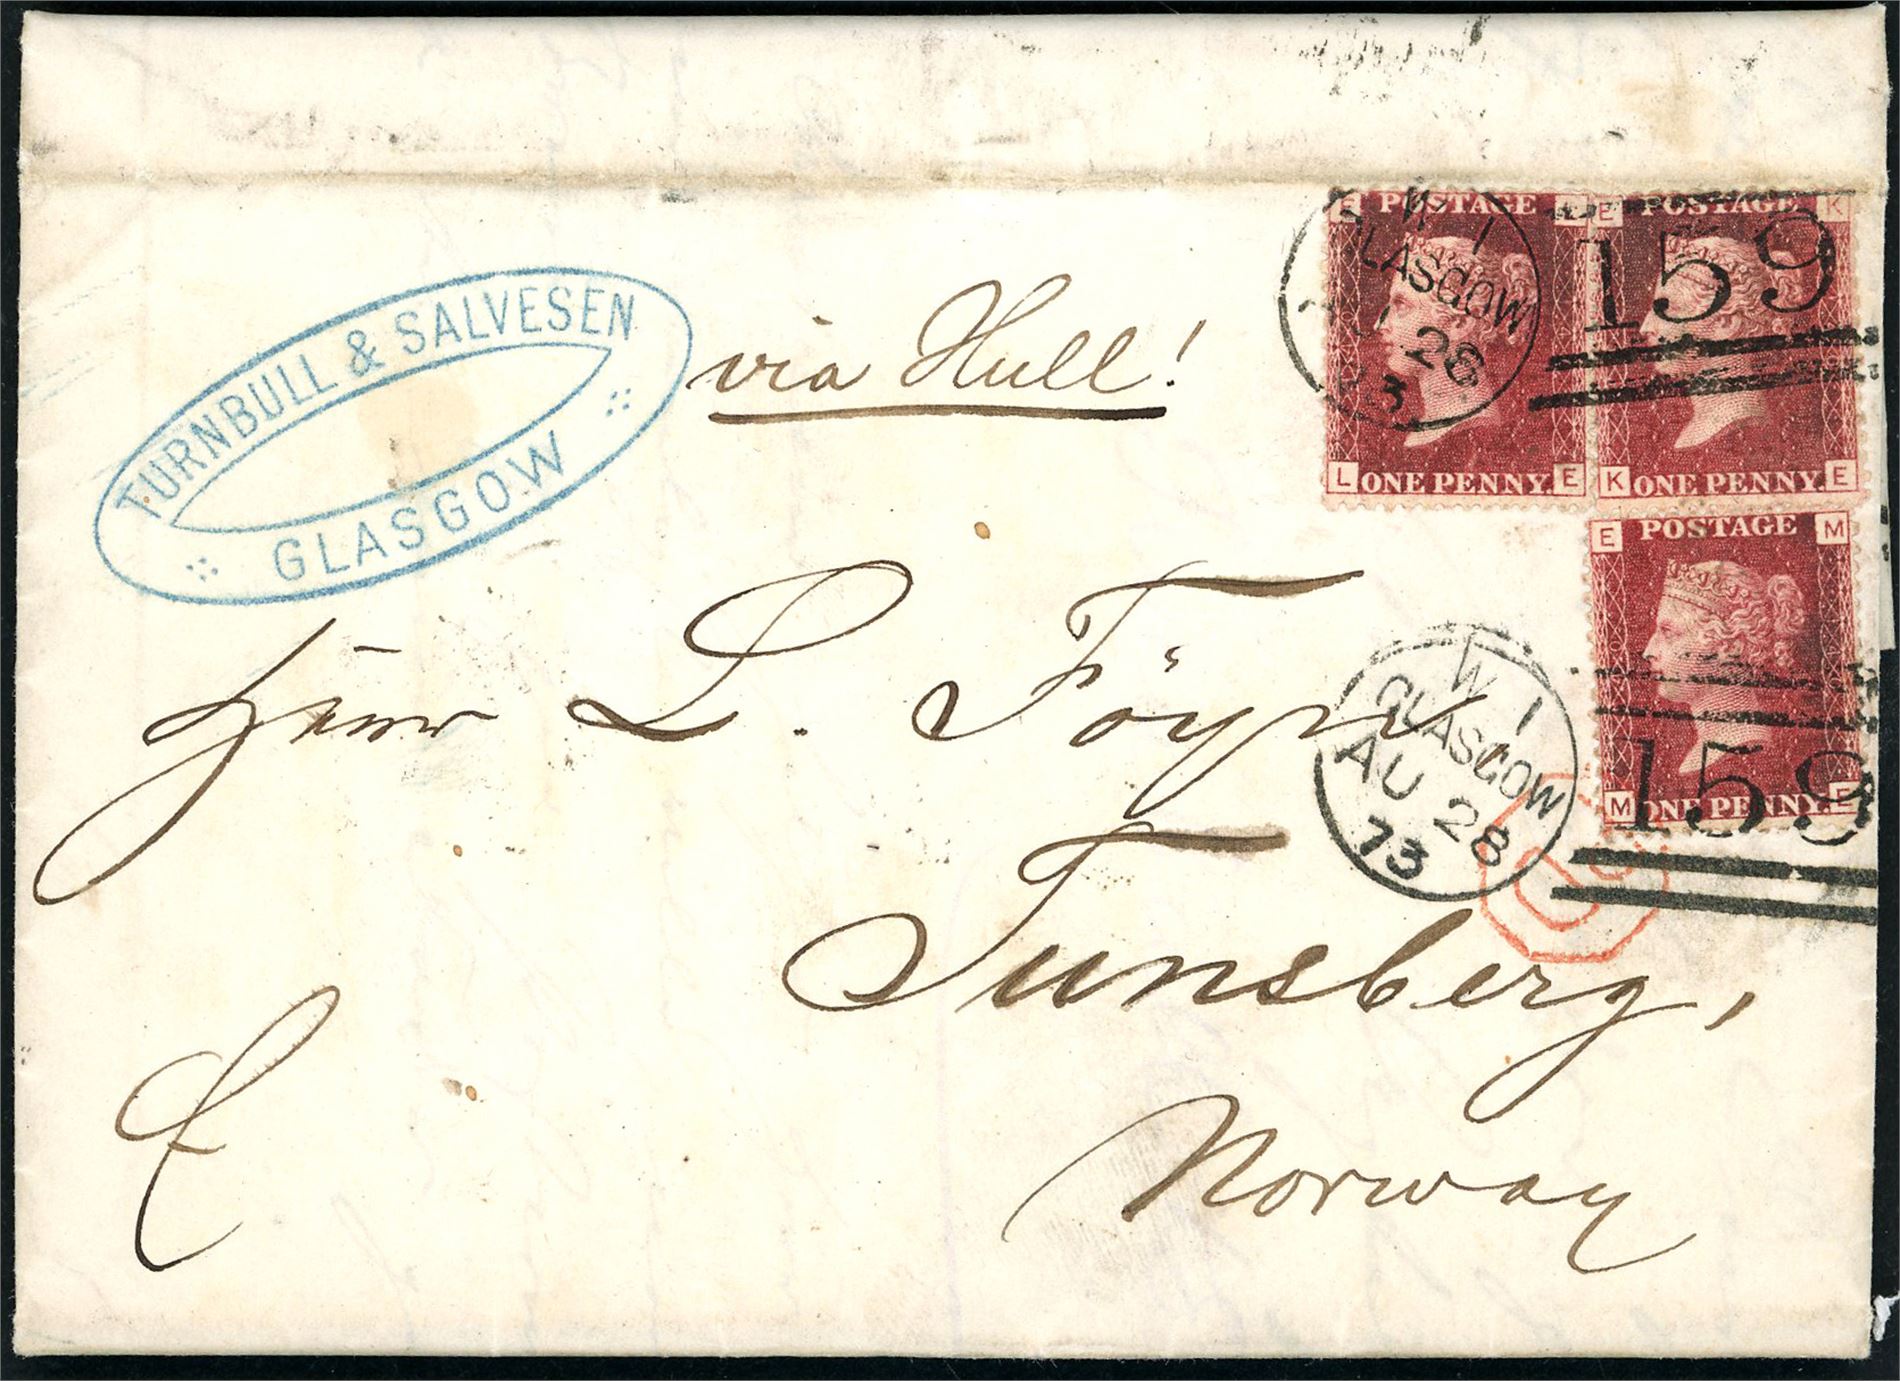 TURNBULL & SALVESEN
GLASGOW
via Hull!
E POSTAGE L
L ONE PENNY. E
E POSTAGE K
K ONE PENNY. E
W 1
GLASGOW
AU 28
73
159
E POSTAGE M
M ONE PENNY. E
W 1
GLASGOW
AU 28
73
159
Herr L. Föyn
Tunsberg,
Norway